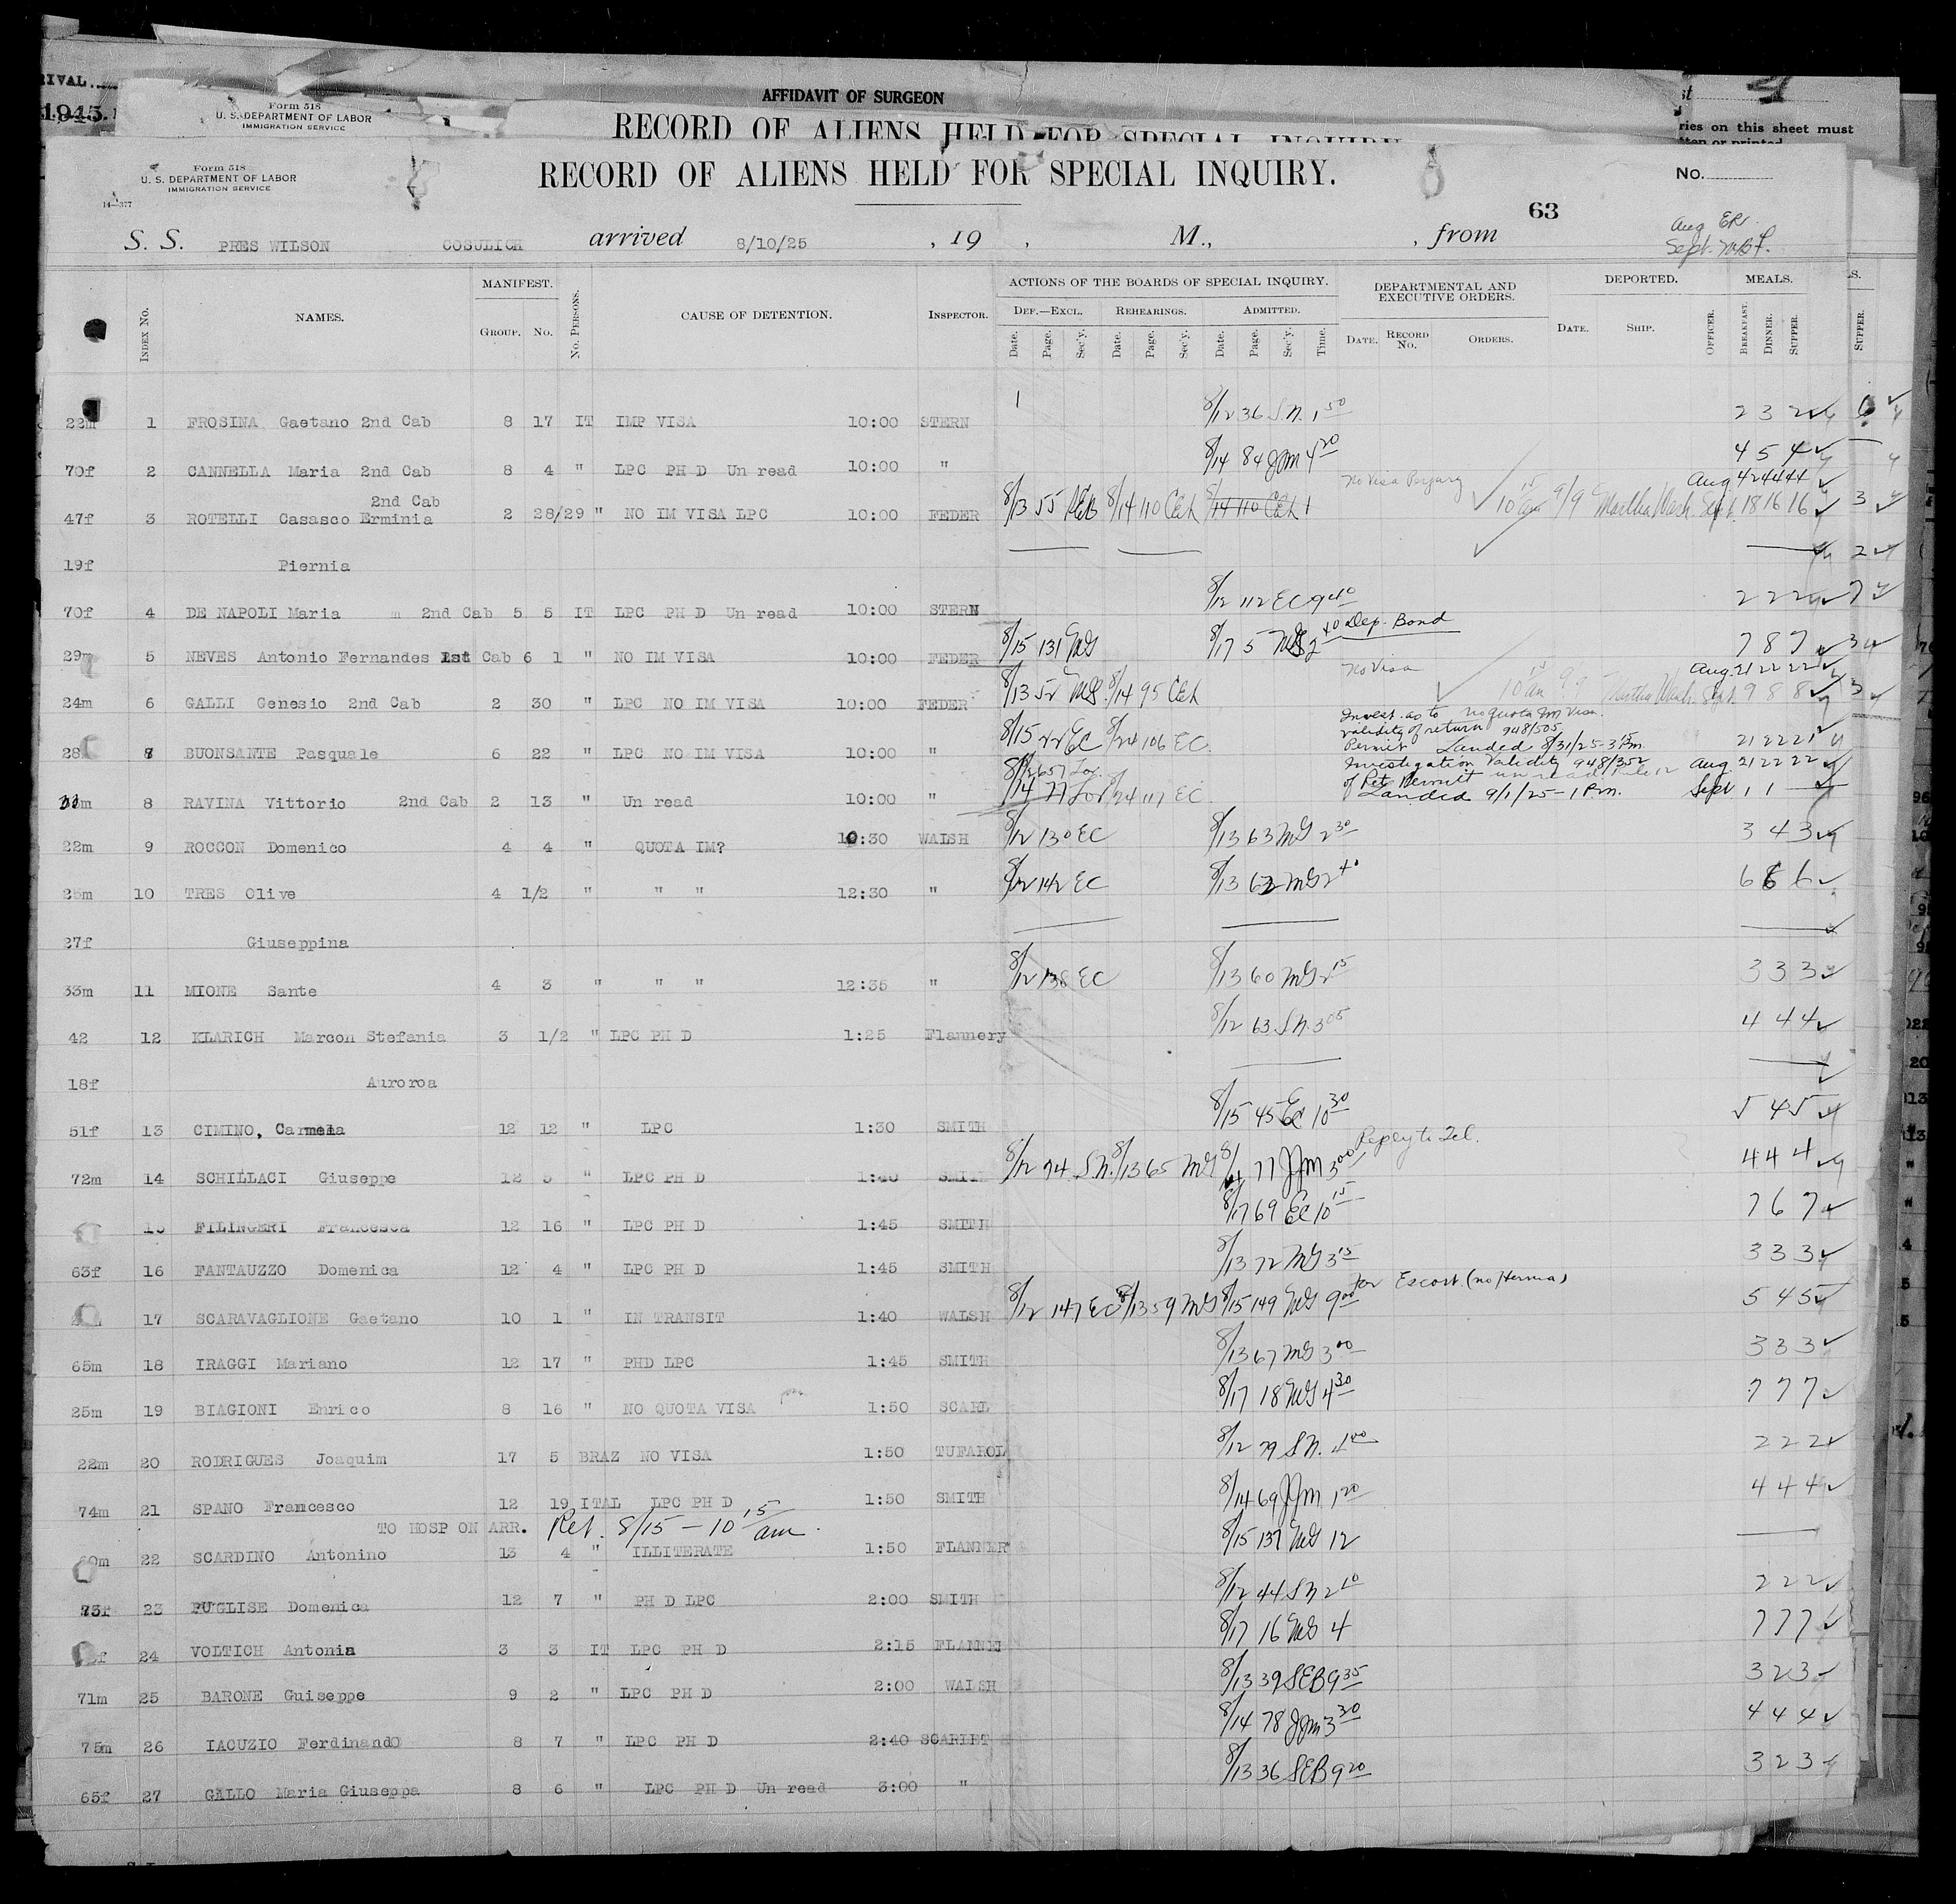 RIVAL
1945.
AFFIDAVIT OF SURGEON
Form 518
U. S. DEPARTMENT OF LABOR
IMMIGRATION SERVICE
RECORD OF ALIENS HELD FOR SPECIAL INQUIRY
ries on this sheet must
Form 518
U. S. DEPARTMENT OF LABOR
IMMIGRATION SERVICE
14—377
RECORD OF ALIENS HELD FOR SPECIAL INQUIRY.
No.
63
Aug ER
Sept.
S. S. PRES WILSON COSULICH arrived 8/10/25 , 19 , M., , from
Index No. NAMES. MANIFEST. Group. No. No. Persons. CAUSE OF DETENTION. Inspector. ACTIONS OF THE BOARDS OF SPECIAL INQUIRY. Def.—Excl. Date. Page. Sec'y. Rehearings. Date. Page. Sec'y. Admitted. Date. Page. Sec'y. Time. DEPARTMENTAL AND EXECUTIVE ORDERS. Date. Record No. Orders. DEPORTED. Date. Ship. Officer. MEALS. Breakfast. Dinner. Supper. Supper.
22m 1 FROSINA Gaetano 2nd Cab 8 17 IT IMP VISA 10:00 STERN 8/12 36 S.N. 1 50 2 3 2
70f 2 CANNELLA Maria 2nd Cab 8 4 " LPC PH D Un read 10:00 " 8/14 84 JPM 4 20 4 5 4
2nd Cab
47f 3 ROTELLI Casasco Erminia 2 28/29 " NO IM VISA LPC 10:00 FEDER 8/13 55 8/14 110 CEH 8/14 110 CEH No Visa Perjury 10 15 am 9/9 Martha Wash. Sept 18 16 16 3
19f Piernia 2
70f 4 DE NAPOLI Maria m 2nd Cab 5 5 IT LPC PH D Un read 10:00 STERN 8/12 112 EC 9 40 2 2 2 7
29m 5 NEVES Antonio Fernandes 1st Cab 6 1 " NO IM VISA 10:00 FEDER 8/15 131 MG 8/17 5 MG 2 40 Dep. Bond 7 8 7 3
24m 6 GALLI Genesio 2nd Cab 2 30 " LPC NO IM VISA 10:00 FEDER 8/13 52 MG 8/14 95 CEH No Visa 10 15 am 9/9 Martha Wash. Aug. 21 22 22 Sept. 9 8 8 3
28 7 BUONSANTE Pasquale 6 22 " LPC NO IM VISA 10:00 " 8/15 22 EC 8/24 106 EC Invest. as to validity of return Permit no quota Im Visa. 948/505 Landed 8/31/25-3 15 Pm. 21 22 21
8 RAVINA Vittorio 2nd Cab 2 13 " Un read 10:00 " 8/14 77 8/24 117 EC Investigation Validity 948/352 of Ret Permit un read Landed 9/1/25-1 Pm. Aug 21 22 22 Sept 1 1
22m 9 ROCCON Domenico 4 4 " QUOTA IM? 10:30 WALSH 8/12 130 EC 8/13 63 MG 2 30 3 4 3
25m 10 TRES Olive 4 1/2 " " " 12:30 " 8/12 142 EC 8/13 62 MG 2 40 6 6 6
27f Giuseppina
33m 11 MIONE Sante 4 3 " " " 12:35 " 8/12 138 EC 8/13 60 MG 2 15 3 3 3
42 12 KLARICH Marcon Stefania 3 1/2 " LPC PH D 1:25 Flannery 8/12 63 S.N. 3 05 4 4 4
18f Auroroa
51f 13 CIMINO, Carmela 12 12 " LPC 1:30 SMITH 8/15 45 EC 10 30 5 4 5
72m 14 SCHILLACI Giuseppe 12 5 " LPC PH D 1:40 SMITH 8/12 74 S.N. 8/13 65 MG 8/14 77 JPM 3 00 Reply to Tel. 4 4 4
15 FILINGERI Francesca 12 16 " LPC PH D 1:45 SMITH 8/17 69 EC 10 15 7 6 7
63f 16 FANTAUZZO Domenica 12 4 " LPC PH D 1:45 SMITH 8/13 72 MG 3 15 3 3 3
17 SCARAVAGLIONE Gaetano 10 1 " IN TRANSIT 1:40 WALSH 8/12 147 EC 8/13 59 MG 8/15 149 MG 9 00 for Escort (no Hernia) 5 4 5
65m 18 IRAGGI Mariano 12 17 " PHD LPC 1:45 SMITH 8/13 67 MG 3 00 3 3 3
25m 19 BIAGIONI Enrico 8 16 " NO QUOTA VISA 1:50 SCARL 8/17 18 MG 4 30 7 7 7
22m 20 RODRIGUES Joaquim 17 5 BRAZ NO VISA 1:50 TUFAROL 8/12 79 S.N. 4 00 2 2 2
74m 21 SPANO Francesco 12 19 ITAL LPC PH D 1:50 SMITH 8/14 69 JPM 1 20 4 4 4
TO HOSP ON ARR. Ret. 8/15 - 10 15 am.
60m 22 SCARDINO Antonino 13 4 " ILLITERATE 1:50 FLANNER 8/15 137 MG 12
75f 23 PUGLISE Domenica 12 7 " PH D LPC 2:00 SMITH 8/12 44 S N 2 10 2 2 2
f 24 VOLTICH Antonia 3 3 IT LPC PH D 2:15 FLANNE 8/17 16 MG 4 7 7 7
71m 25 BARONE Guiseppe 9 2 " LPC PH D 2:00 WALSH 8/13 39 SEB 9 35 3 2 3
75m 26 IACUZIO Ferdinando 8 7 " LPC PH D 2:40 SCARLET 8/14 78 JPM 3 30 4 4 4
65f 27 GALLO Maria Giuseppa 8 6 " LPC PH D Un read 3:00 " 8/13 36 SEB 9 20 3 2 3